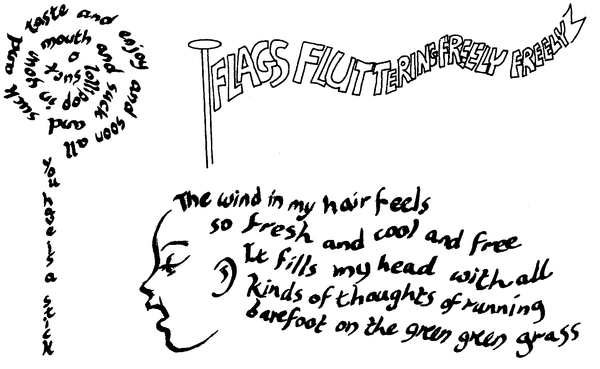 Stick a lollipop in your mouth and suck and suck and taste and enjoy and soon all
you have is a stick
FLAGS FLUTTERING FREELY FREELY
The wind in my hair feels
so fresh and cool and free
It fills my head with all
kinds of thoughts of running
barefoot on the green green grass